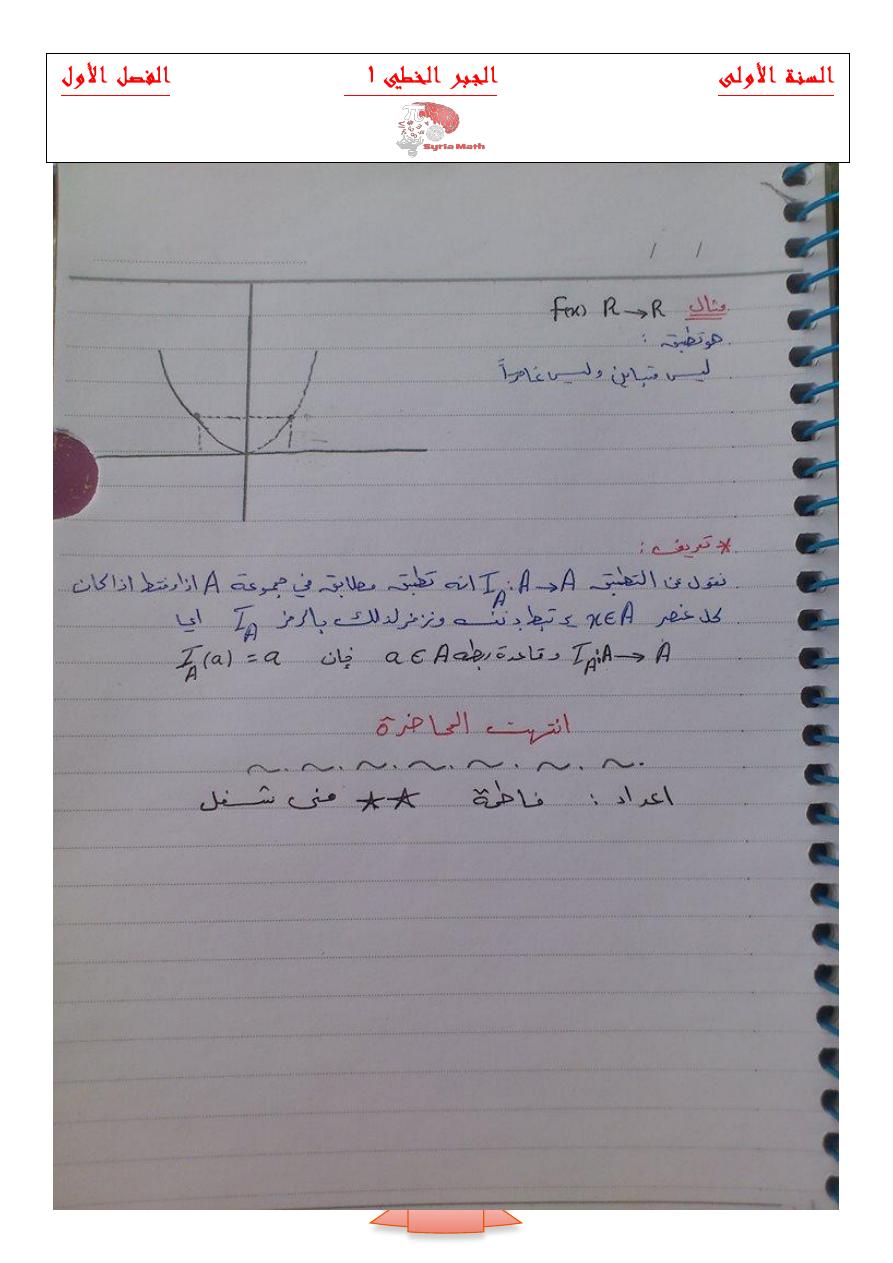 السنة الأولى
الجبر الخطي ١
الفصل الأول
Syria Math
/ /
مثال f(x) R → R
هو تطبيق :
ليس متباين وليس غامراً
* تعريف :
نقول عن التطبيق I_A : A → A انه تطبيق مطابق في مجموعة A اذا وفقط اذا كان
كل عنصر x ∈ A يرتبط بنفسه ونرمز لذلك بالرمز I_A ايا
I_A : A → A وقاعدة ربطه a ∈ A فإن I_A(a) = a
انتهت المحاضرة
اعداد : فاطمة ** منى شغل